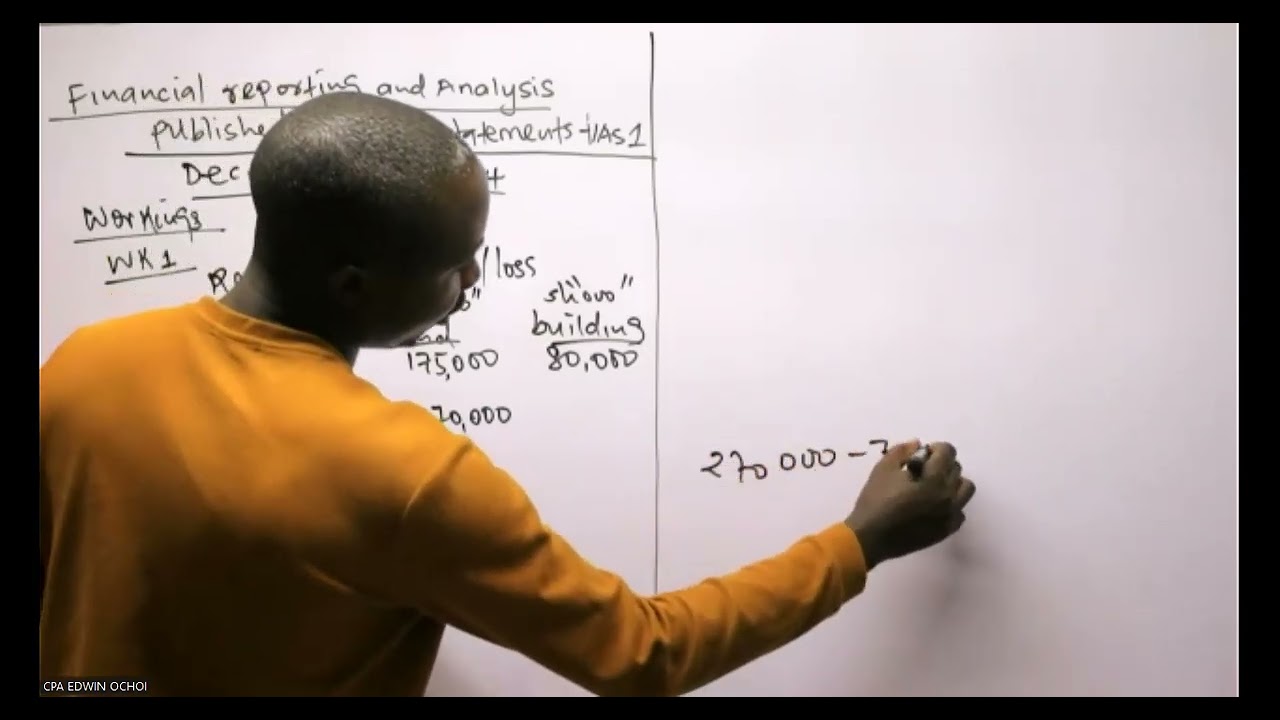 Financial reporting and Analysis
statements - IAS 1
Dec
Workings
WK1
/loss
sh "000"
building
175,000 80,000
70,000
270 000 -
CPA EDWIN OCHOI